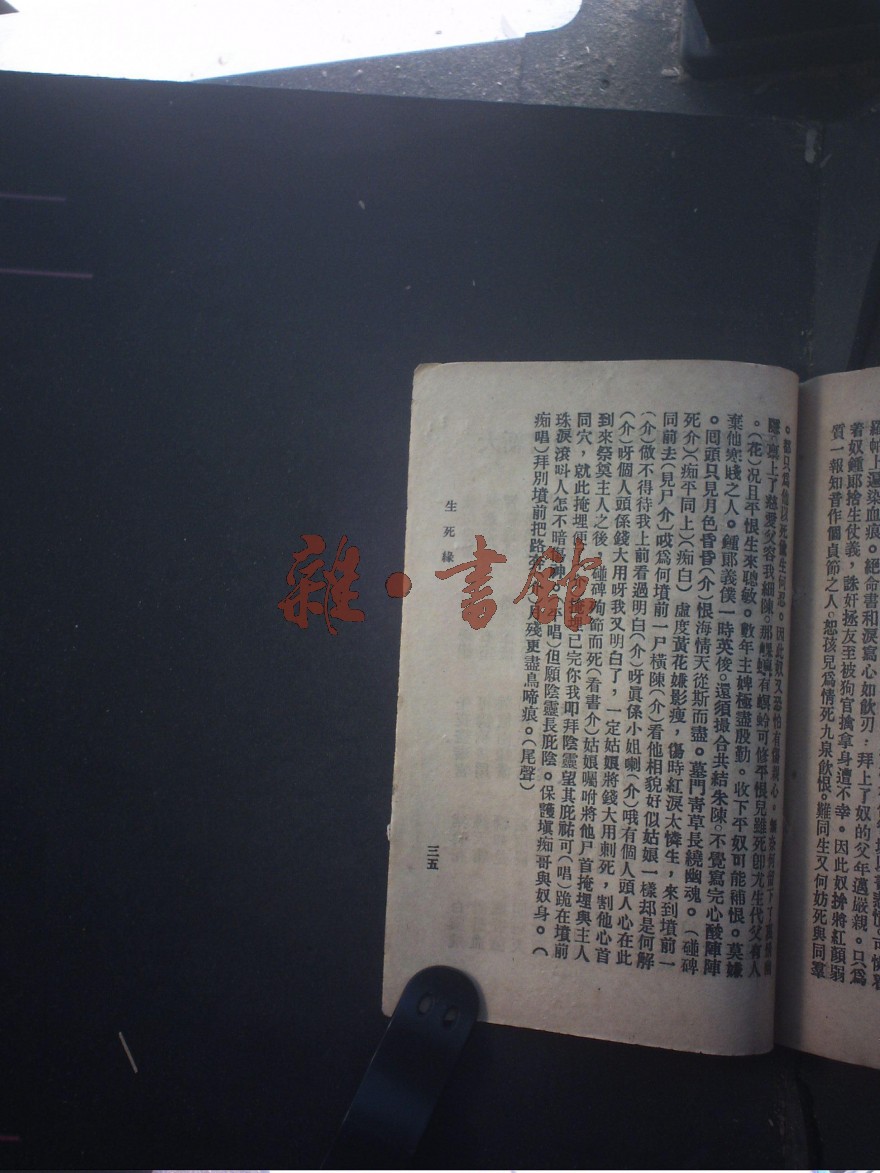 羅帕上遍染血痕。絕命書和淚寫心如飲刃
着奴鍾郎捨生仗義，誅奸拯友至被狗官擒拿身遭不幸。因此奴拚將紅顏弱
質一報知音作個貞節之人。恕孩兒爲情死九泉飲恨。雖同生又何妨死與同羣
。都只爲他以死
上了慈愛父容我細陳。那螟蛉有螟蛉可修平恨兒雖死卽尤生代父有人
。（花）况且平恨生來聰敏。數年主婢極盡殷勤。收下平奴可能補恨。莫嫌
棄他寒賤之人。鍾郎義僕一時英俊。還須撮合共結朱陳。不覺寫完心酸陣陣
。囘頭只見月色昏昏（介）恨海情天從斯而盡。墓門靑草長繞幽魂。（碰碑
死介）（痴平同上）（痴白）虛度黃花嫌影瘦，傷時紅淚太憐生，來到墳前一
同前去（見尸介）哎爲何墳前一尸橫陳（介）看他相貌好似姑娘一樣却是何解
（介）做不得待我上前看過明白（介）呀眞係小姐喇（介）哦有個人頭人心在此
（介）呀個人頭係錢大用呀我又明白了，一定姑娘將錢大用刺死，割他心首
到來祭奠主人之後，碰碑殉節而死（看書介）姑娘囑咐將他尸首掩埋與主人
同穴，就此掩埋便了（介）掩埋已完你我叩拜陰靈望其庇祐可（唱）跪在墳前
珠淚滾呌人怎不暗傷神。（平唱）但願陰靈長庇陰。保護塡痴哥與奴身。（
痴唱）拜別墳前把路奔（介）月殘更盡鳥啼痕。（尾聲）
生死緣
三五
雜·書館